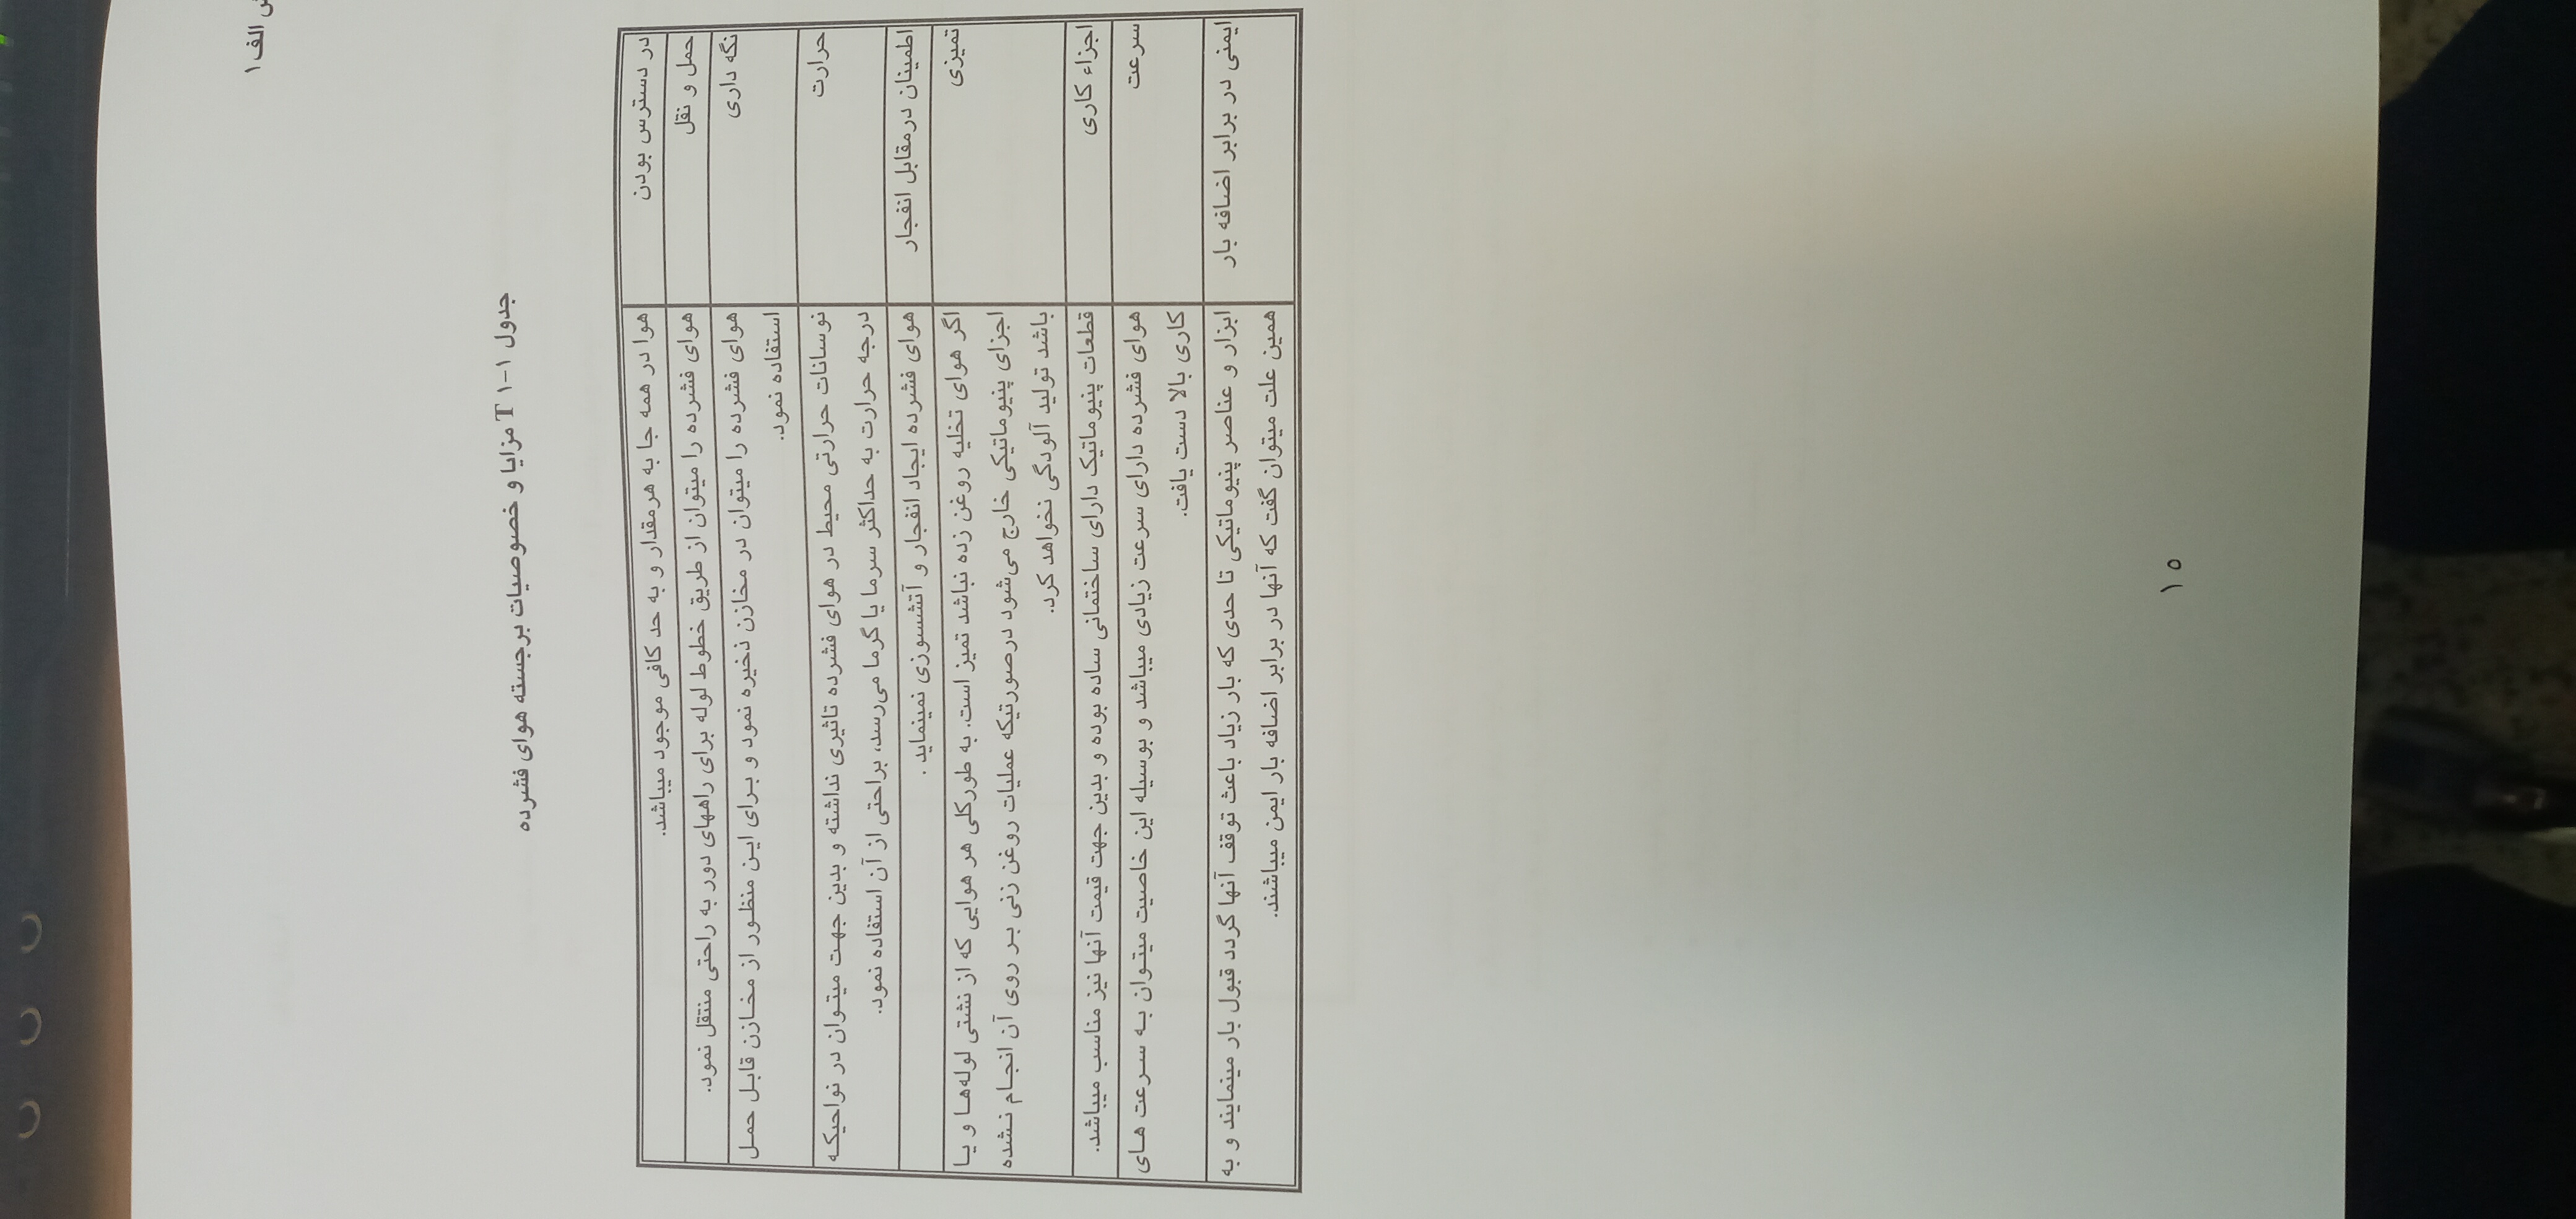 الف ۱
جدول ۱-۱ T مزایا و خصوصیات برجسته هوای فشرده
در دسترس بودن
هوا در همه جا به هرمقدار و به حد کافی موجود میباشد.
حمل و نقل
هوای فشرده را میتوان از طریق خطوط لوله برای راههای دور به راحتی منتقل نمود.
نگه داری
هوای فشرده را میتوان در مخازن ذخیره نمود و برای این منظور از مخازن قابل حمل
استفاده نمود.
حرارت
نوسانات حرارتی محیط در هوای فشرده تاثیری نداشته و بدین جهت میتوان در نواحیکه
درجه حرارت به حداکثر سرما یا گرما می‌رسد، براحتی از آن استفاده نمود.
اطمینان درمقابل انفجار
هوای فشرده ایجاد انفجار و آتشسوزی نمینماید .
تمیزی
اگر هوای تخلیه روغن زده نباشد تمیز است. به طورکلی هر هوایی که از نشتی لوله‌ها و یا
اجزای پنیوماتیکی خارج می‌شود درصورتیکه عملیات روغن زنی بر روی آن انجام نشده
باشد تولید آلودگی نخواهد کرد.
اجزاء کاری
قطعات پنیوماتیک دارای ساختمانی ساده بوده و بدین جهت قیمت آنها نیز مناسب میباشد.
سرعت
هوای فشرده دارای سرعت زیادی میباشد و بوسیله این خاصیت میتوان به سرعت های
کاری بالا دست یافت.
ایمنی در برابر اضافه بار
ابزار و عناصر پنیوماتیکی تا حدی که بار زیاد باعث توقف آنها گردد قبول بار مینمایند و به
همین علت میتوان گفت که آنها در برابر اضافه بار ایمن میباشند.
۱۵